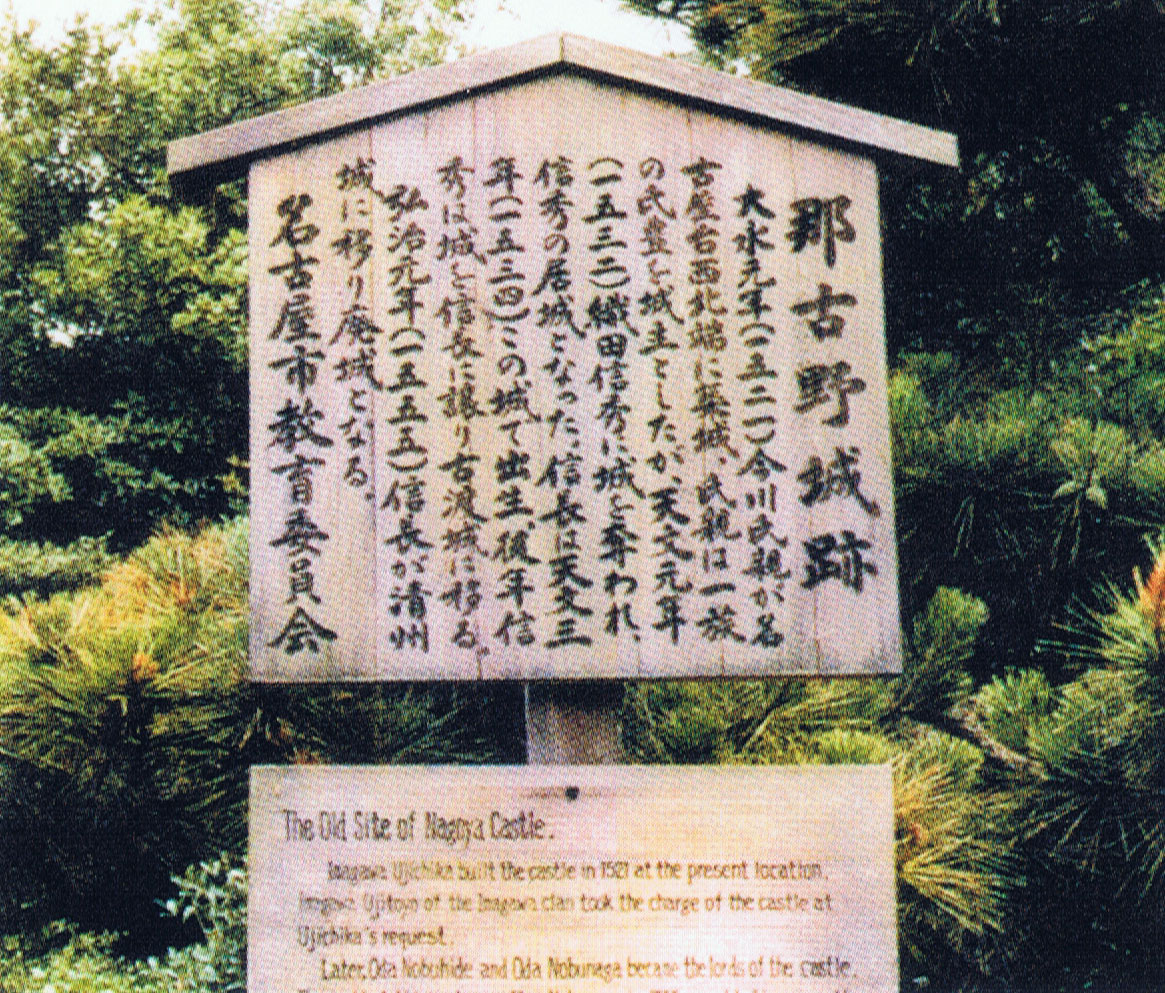 那古野城跡
大永元年(一五二一)今川氏親が名
古屋台西北端に築城、氏親は一族
の氏豊を城主としたが、天文元年
(一五三二)織田信秀に城を奪われ、
信秀の居城となった。信長は天文三
年(一五三四)この城で出生、後年信
秀は城を信長に譲り古渡城に移る。
弘治元年(一五五五)信長が清州
城に移り廃城となる。
名古屋市教育委員会
The Old Site of Nagoya Castle.
Imagawa Ujichika built the castle in 1521 at the present location.
Imagawa Ujitoyo of the Imagawa clan took the charge of the castle at
Ujichika's request.
Later, Oda Nobuhide and Oda Nobunaga became the lords of the castle.